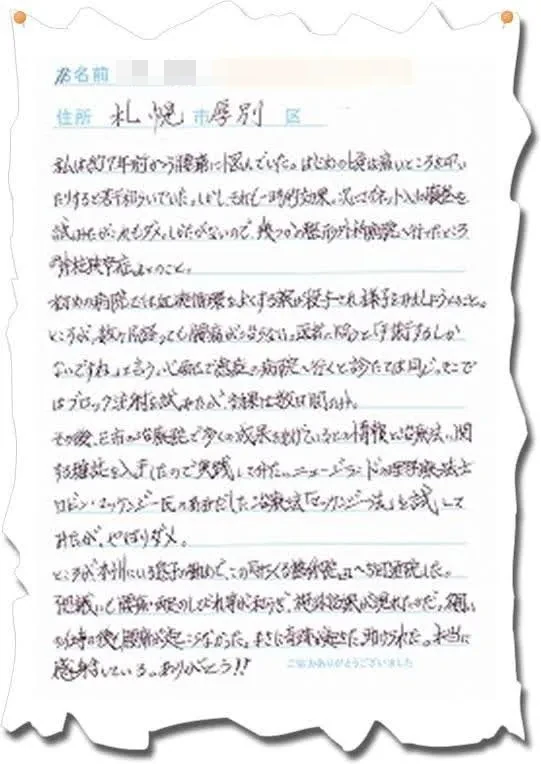 お名前
住所 札幌市厚別区
私は約7年前から腰痛に悩んでいた。はじめの頃は痛いところを叩い
たりすると若干和らいでいた。しかし、それも一時的効果。次にマグネット入りの寝巻を
試みたがこれもダメ。しかたがないので、幾つかの整形外科病院へ行ったところ
『脊柱狭窄症』とのこと。
初めの病院では血液循環をよくする薬が投与され、様子をみましょうとのこと。
ところが、数ヶ月経っても腰痛が治らない。医者に問うと「手術するしか
ないですね」と言う。心配で他の病院へ行くと診たては同じ。そこで
はブロック注射を試みたが効果は数日間だけ。
その後、市の治療院で多くの成果を挙げているとの情報と治療法に関
する雑誌を入手したので実践してみた。ニュージーランドの理学療法士
ロビン・マッケンジー氏のあみだした治療法「マッケンジー法」を試して
みたが、やはりダメ。
ところが本州にいる息子の勧めで、この整体院へ5回通院した。
不思議にも腰痛・両足のしびれ等が和らぎ、施術効果が現れたのだ。
の仕事の後も腰痛が起こらなかった。まさに奇跡が起きた。助けられた。本当に
感謝している。ありがとう!!
ご協力ありがとうございました